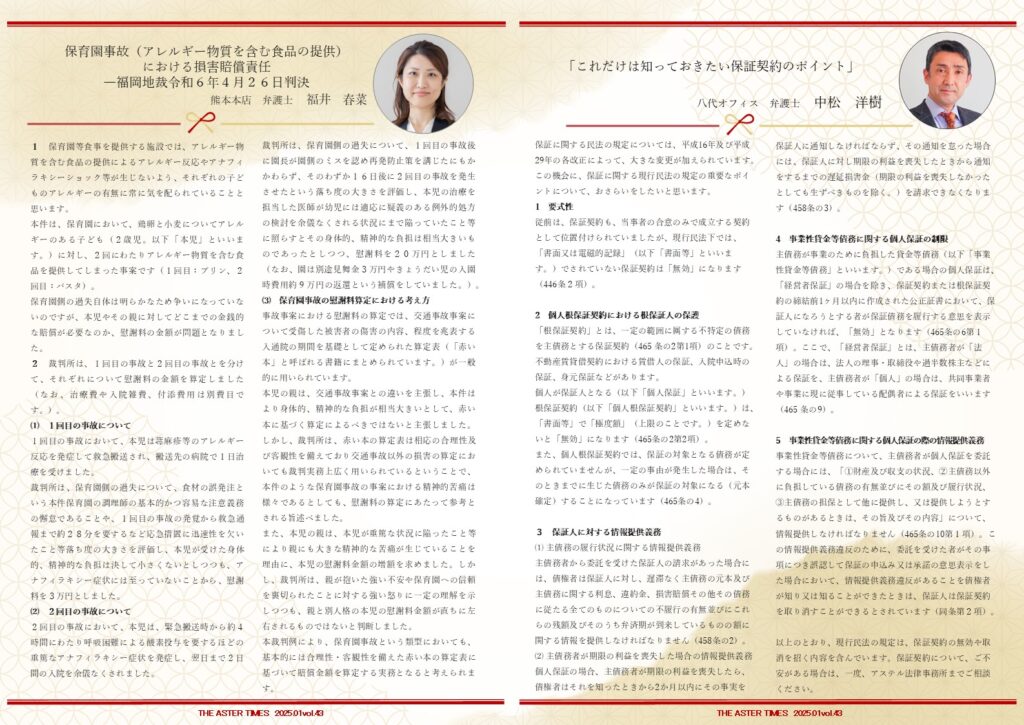 保育園事故（アレルギー物質を含む食品の提供）
における損害賠償責任
―福岡地裁令和６年４月２６日判決
熊本本店　弁護士　福井　春菜
１　保育園等食事を提供する施設では、アレルギー物
質を含む食品の提供によるアレルギー反応やアナフィ
ラキシーショック等が生じないよう、それぞれの子ど
ものアレルギーの有無に常に気を配られていることと
思います。
本件は、保育園において、鶏卵と小麦についてアレル
ギーのある子ども（２歳児。以下「本児」といいま
す。）に対し、２回にわたりアレルギー物質を含む食
品を提供してしまった事案です（１回目：プリン、２
回目：パスタ）。
保育園側の過失自体は明らかなため争いになっていな
いのですが、本児やその親に対してどこまでの金銭的
な賠償が必要なのか、慰謝料の金額が問題となりまし
た。
２　裁判所は、１回目の事故と２回目の事故とを分け
て、それぞれについて慰謝料の金額を算定しました
（なお、治療費や入院雑費、付添費用は別費目で
す。）。
⑴　１回目の事故について
１回目の事故において、本児は蕁麻疹等のアレルギー
反応を発症して救急搬送され、搬送先の病院で１日治
療を受けました。
裁判所は、保育園側の過失について、食材の誤発注と
いう本件保育園の調理師の基本的かつ容易な注意義務
の懈怠であることや、１回目の事故の発覚から救急通
報まで約２８分を要するなど応急措置に迅速性を欠い
たこと等落ち度の大きさを評価し、本児が受けた身体
的、精神的な負担は決して小さくないとしつつも、ア
ナフィラキシー症状には至っていないことから、慰謝
料を３万円としました。
⑵　２回目の事故について
２回目の事故において、本児は、緊急搬送時から約４
時間にわたり呼吸困難による酸素投与を要するほどの
重篤なアナフィラキシー症状を発症し、翌日まで２日
間の入院を余儀なくされました。
裁判所は、保育園側の過失について、１回目の事故後
に園長が園側のミスを認め再発防止策を講じたにもか
かわらず、そのわずか１６日後に２回目の事故を発生
させたという落ち度の大きさを評価し、本児の治療を
担当した医師が幼児には適応に疑義のある例外的処方
の検討を余儀なくされる状況にまで陥っていたこと等
に照らすとその身体的、精神的な負担は相当大きいも
のであったとしつつ、慰謝料を２０万円としました
（なお、園は別途見舞金３万円やきょうだい児の入園
時費用約９万円の返還という補償をしていました。）。
⑶　保育園事故の慰謝料算定における考え方
事故事案における慰謝料の算定では、交通事故事案に
ついて受傷した被害者の傷害の内容、程度を兆表する
入通院の期間を基礎として定められた算定表（「赤い
本」と呼ばれる書籍にまとめられています。）が一般
的に用いられています。
本児の親は、交通事故事案との違いを主張し、本件は
より身体的、精神的な負担が相当大きいとして、赤い
本に基づく算定によるべきではないと主張しました。
しかし、裁判所は、赤い本の算定表は相応の合理性及
び客観性を備えており交通事故以外の損害の算定にお
いても裁判実務上広く用いられているということで、
本件のような保育園事故の事案における精神的苦痛は
様々であるとしても、慰謝料の算定にあたって参考と
される旨述べました。
また、本児の親は、本児が重篤な状況に陥ったこと等
により親にも大きな精神的な苦痛が生じていることを
理由に、本児の慰謝料金額の増額を求めました。しか
し、裁判所は、親が抱いた強い不安や保育園への信頼
を裏切られたことに対する強い怒りに一定の理解を示
しつつも、親と別人格の本児の慰謝料金額が直ちに左
右されるものではないと判断しました。
本裁判例により、保育園事故という類型においても、
基本的には合理性・客観性を備えた赤い本の算定表に
基づいて賠償金額を算定する実務となると考えられま
す。
THE ASTER TIMES　2025.01vol.43
「これだけは知っておきたい保証契約のポイント」
八代オフィス　弁護士　中松　洋樹
保証に関する民法の規定については、平成16年及び平成
29年の各改正によって、大きな変更が加えられています。
この機会に、保証に関する現行民法の規定の重要なポイ
ントについて、おさらいをしたいと思います。
１　要式性
従前は、保証契約も、当事者の合意のみで成立する契約
として位置付けられていましたが、現行民法下では、
「書面又は電磁的記録」（以下「書面等」といいま
す。）でされていない保証契約は「無効」になります
（446条２項）。
２　個人根保証契約における根保証人の保護
「根保証契約」とは、一定の範囲に属する不特定の債務
を主債務とする保証契約（465 条の2第1項）のことです。
不動産賃貸借契約における賃借人の保証、入院申込時の
保証、身元保証などがあります。
個人が保証人となる（以下「個人保証」といいます。）
根保証契約（以下「個人根保証契約」といいます。）は、
「書面等」で「極度額」（上限のことです。）を定めな
いと「無効」になります（465条の2第2項）。
また、個人根保証契約では、保証の対象となる債務が定
められていませんが、一定の事由が発生した場合は、そ
のときまでに生じた債務のみが保証の対象になる（元本
確定）することになっています（465条の4）。
３　保証人に対する情報提供義務
⑴ 主債務の履行状況に関する情報提供義務
主債務者から委託を受けた保証人の請求があった場合に
は、債権者は保証人に対し、遅滞なく主債務の元本及び
主債務に関する利息、違約金、損害賠償その他その債務
に従たる全てのものについての不履行の有無並びにこれ
らの残額及びそのうち弁済期が到来しているものの額に
関する情報を提供しなければなりません（458条の2）。
⑵ 主債務者が期限の利益を喪失した場合の情報提供義務
個人保証の場合、主債務者が期限の利益を喪失したら、
債権者はそれを知ったときから2か月以内にその事実を
保証人に通知しなければならず、その通知を怠った場合
には、保証人に対し期限の利益を喪失したときから通知
をするまでの遅延損害金（期限の利益を喪失しなかった
としても生ずべきものを除く。）を請求できなくなりま
す（458条の3）。
４　事業性貸金等債務に関する個人保証の制限
主債務が事業のために負担した貸金等債務（以下「事業
性貸金等債務」といいます。）である場合の個人保証は、
「経営者保証」の場合を除き、保証契約または根保証契
約の締結前1ヶ月以内に作成された公正証書において、保
証人になろうとする者が保証債務を履行する意思を表示
していなければ、「無効」となります（465条の6第1
項）。ここで、「経営者保証」とは、主債務者が「法
人」の場合は、法人の理事・取締役や過半数株主などに
よる保証を、主債務者が「個人」の場合は、共同事業者
や事業に現に従事している配偶者による保証をいいます
（465 条の9）。
５　事業性貸金等債務に関する個人保証の際の情報提供義務
事業性貸金等債務について、主債務者が個人保証を委託
する場合には、「①財産及び収支の状況、②主債務以外
に負担している債務の有無並びにその額及び履行状況、
③主債務の担保として他に提供し、又は提供しようとす
るものがあるときは、その旨及びその内容」について、
情報提供しなければなりません（465条の10第１項）。こ
の情報提供義務違反のために、委託を受けた者がその事
項につき誤認して保証の申込み又は承諾の意思表示をし
た場合において、情報提供義務違反があることを債権者
が知り又は知ることができたときは、保証人は保証契約
を取り消すことができるとされています（同条第２項）。
以上のとおり、現行民法の規定は、保証契約の無効や取
消を招く内容を含んでいます。保証契約について、ご不
安がある場合は、一度、アステル法律事務所までご相談
ください。
THE ASTER TIMES　2025.01vol.43